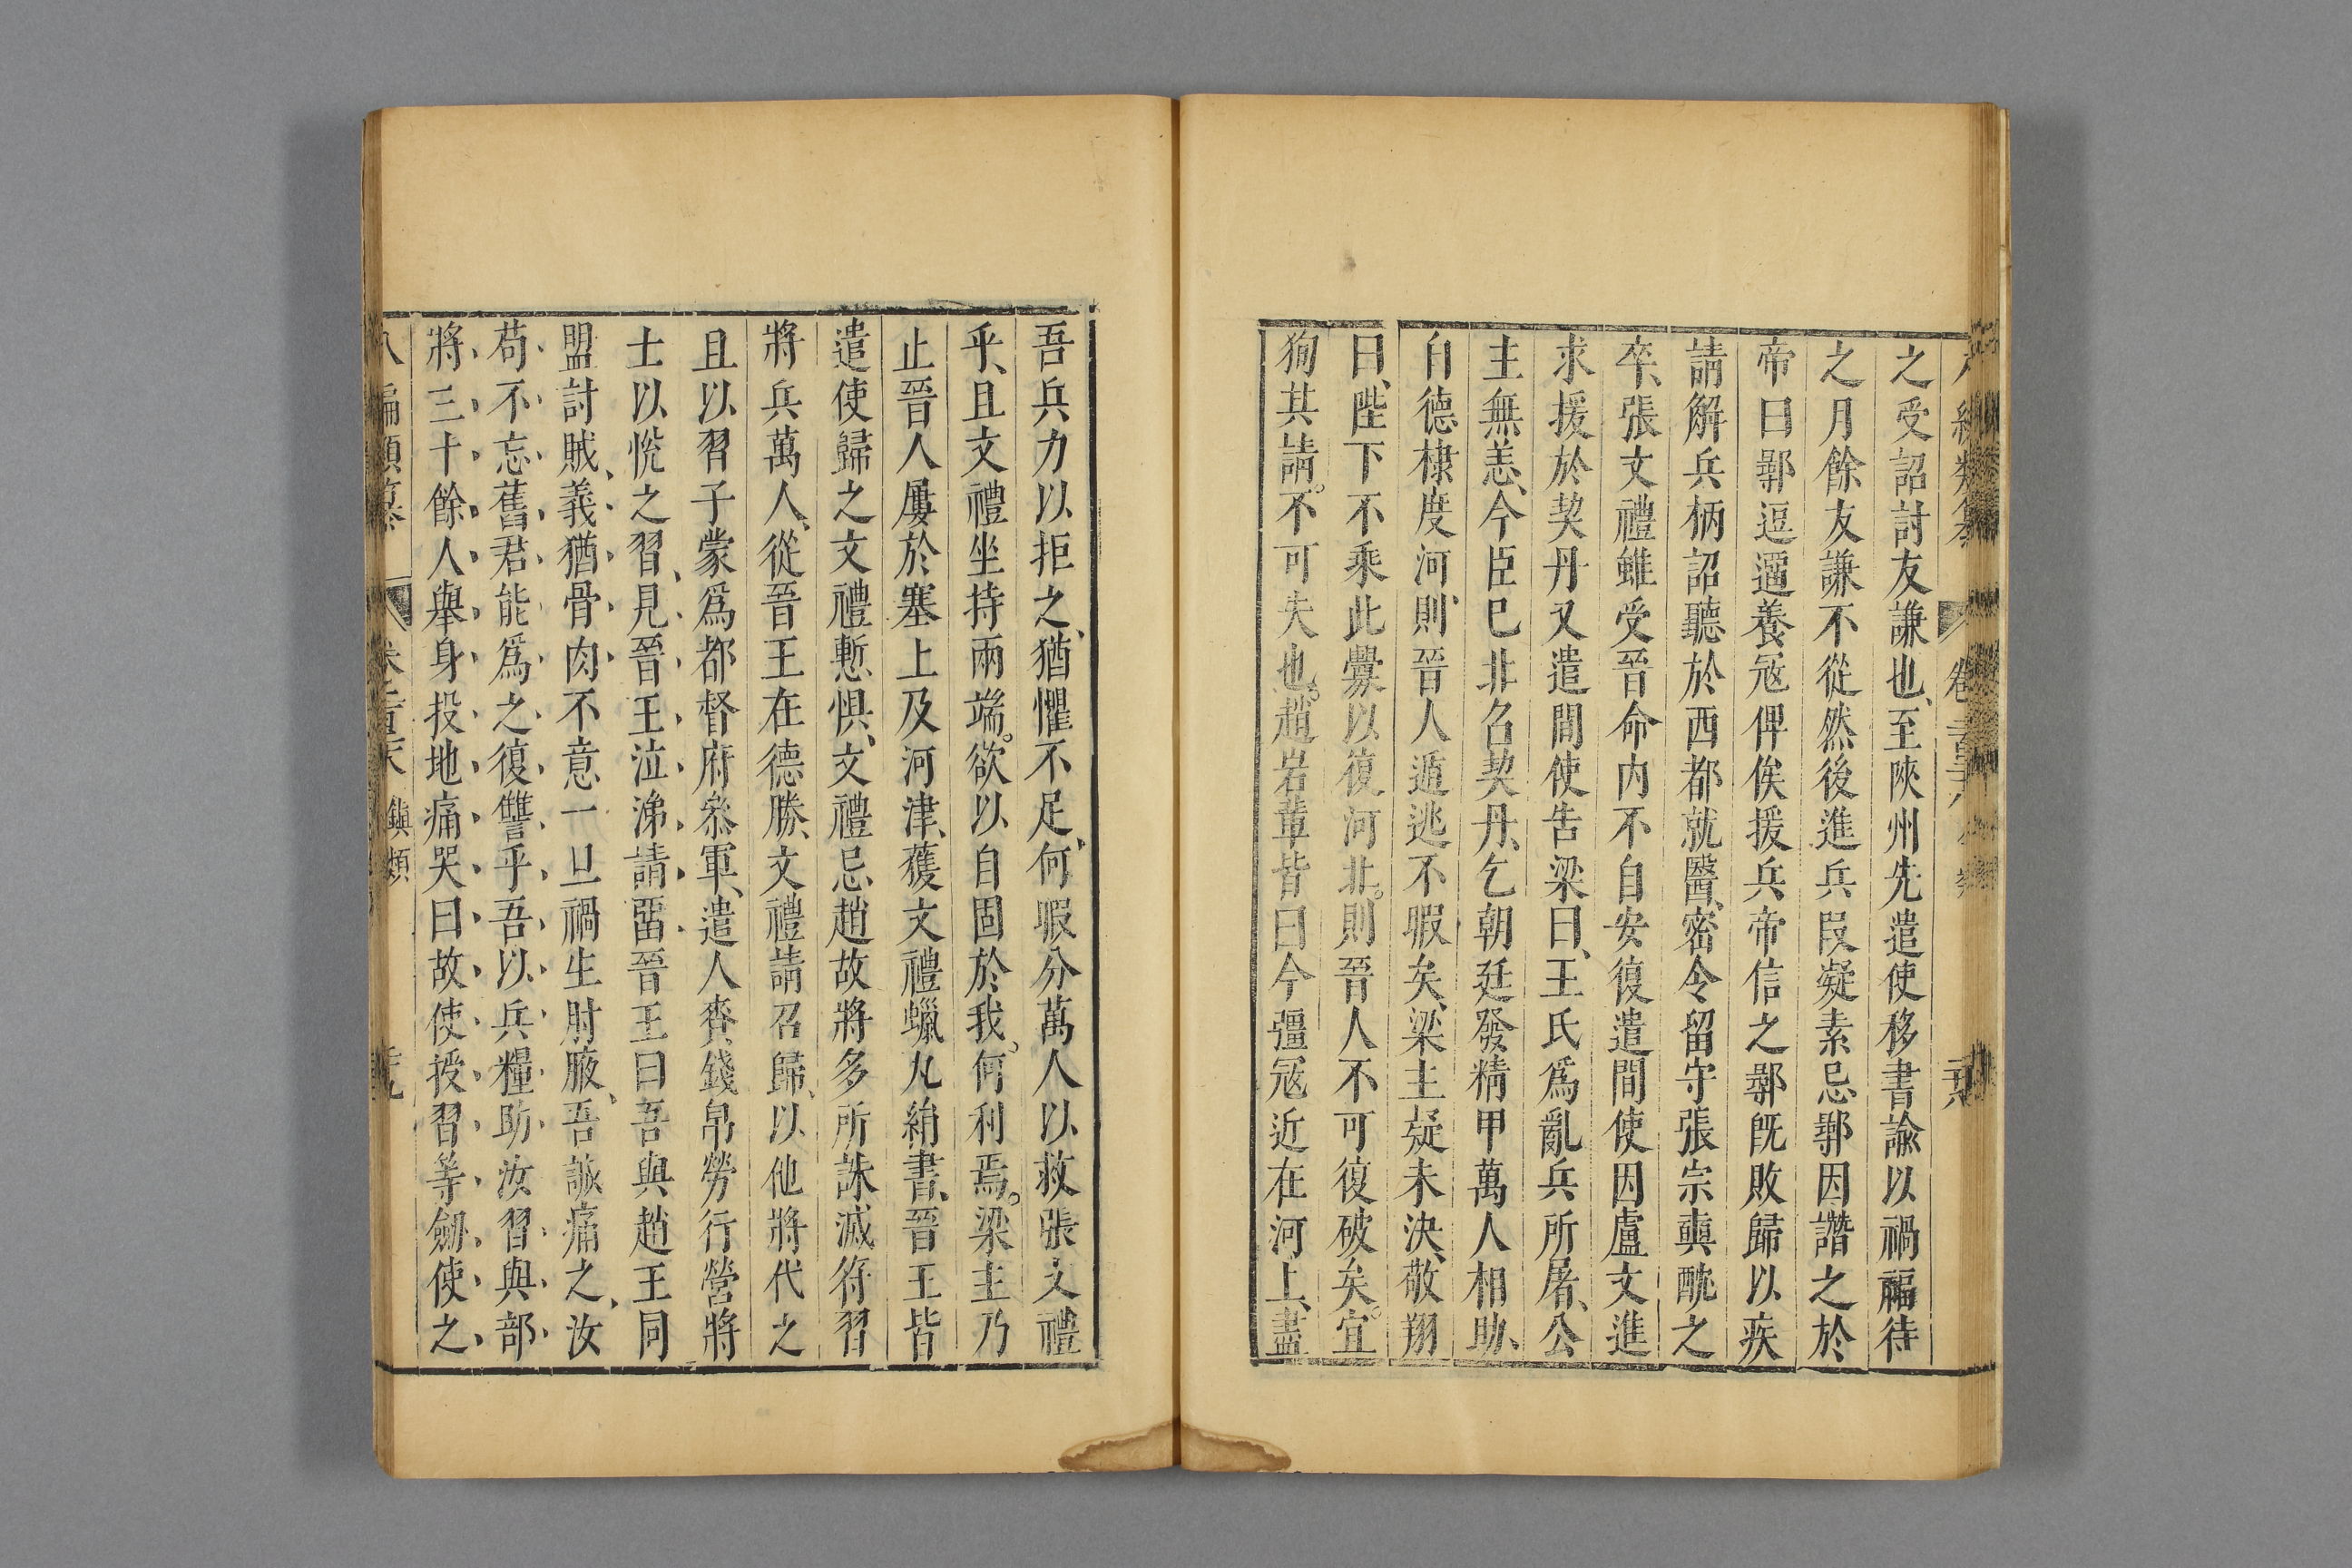 之受詔討友謙也、至陝州先遣使移書諭以禍福待
之月餘友謙不從然後進兵段凝素忌鄩因譖之於
帝曰鄩逗遛養冦俾俟援兵帝信之鄩旣敗歸以疾
請解兵柄詔聽於西都就醫、密令留守張宗奭酖之
卒、張文禮雖受晉命内不自安復遣間使因盧文進
求援於契丹又遣間使告梁曰、王氏爲亂兵所屠、公
主無恙、今臣已北召契丹、乞朝廷發精甲萬人相助、
自德棣度河、則晉人遁逃不暇矣、梁主疑未決、敬翔
曰、陛下不乘此釁以復河北。則晉人不可復破矣。宜
狥其請。不可失也。趙岩輩皆曰今彊冦近在河上、盡
吾兵力以拒之、猶懼不足、何暇分萬人以救張文禮
乎、且文禮坐持兩端。欲以自固於我。何利焉。梁主乃
止晉人屢於塞上及河津、獲文禮蠟丸絹書、晉王皆
遣使歸之文禮慙懼、文禮忌趙故將多所誅滅符習
將兵萬人、從晉王在德勝、文禮請召歸、以他將代之
且以習子蒙爲都督府叅軍、遣人賫錢帛勞行營將
士以悅之習、見晉王泣涕請畱晉王曰吾與趙王同
盟討賊、義猶骨肉不意一旦禍生肘腋、吾誠痛之、汝
苟不忘舊君能爲之復讐乎吾以兵糧助汝習與部
將三十餘人舉身投地痛哭曰故使授習等劒使之
八編類纂 卷 鎮類